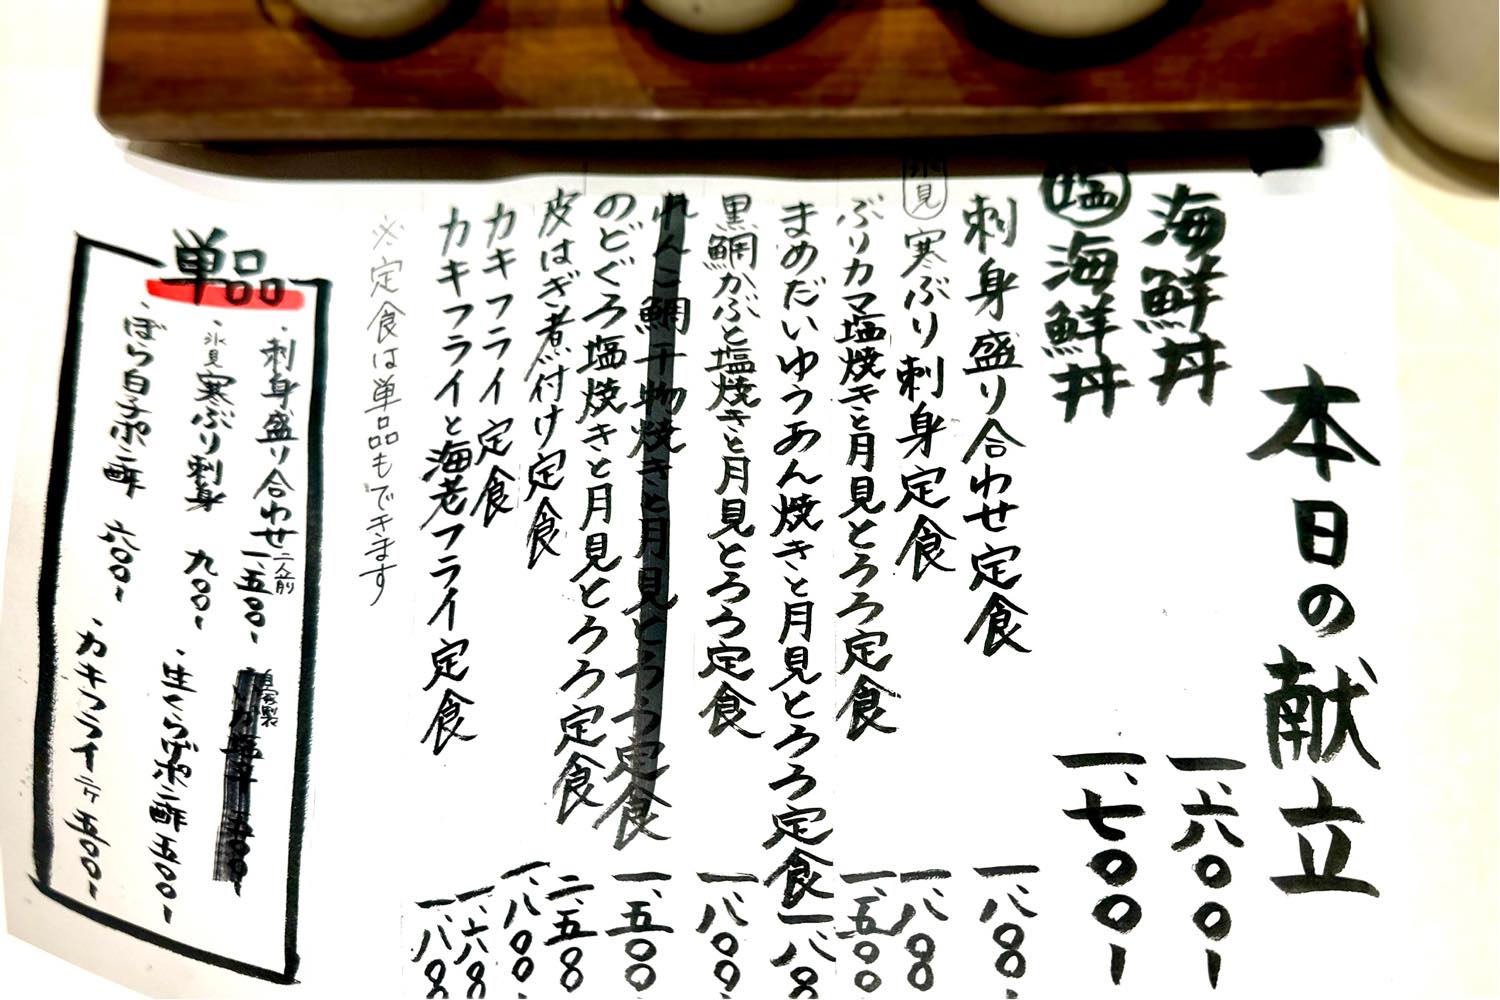 本日の献立
海鮮丼 一、六〇〇ー
塩 海鮮丼 一、七〇〇ー
刺身盛り合わせ定食 一、八〇〇
氷見 寒ぶり刺身定食 一、八〇〇
ぶりカマ塩焼きと月見とろろ定食 一、五〇〇
まめだいゆうあん焼きと月見とろろ定食 一、八〇
黒鯛かぶと塩焼きと月見とろろ定食 一、八〇〇
れんこ鯛干物焼きと月見とろろ定食 一、五〇〇
のどぐろ塩焼きと月見とろろ定食 二、五〇
皮はぎ煮付け定食 一、八〇〇
カキフライ定食 一、六〇
カキフライと海老フライ定食 一、八〇
※定食は単品もできます
単品
・刺身盛り合わせ 二人前 一、五〇〇ー
自家製
・氷見寒ぶり刺身 九〇〇ー
・生くらげポン酢 五〇〇ー
・ぼら白子ポン酢 六〇〇ー
・カキフライ 二ケ 五〇〇ー